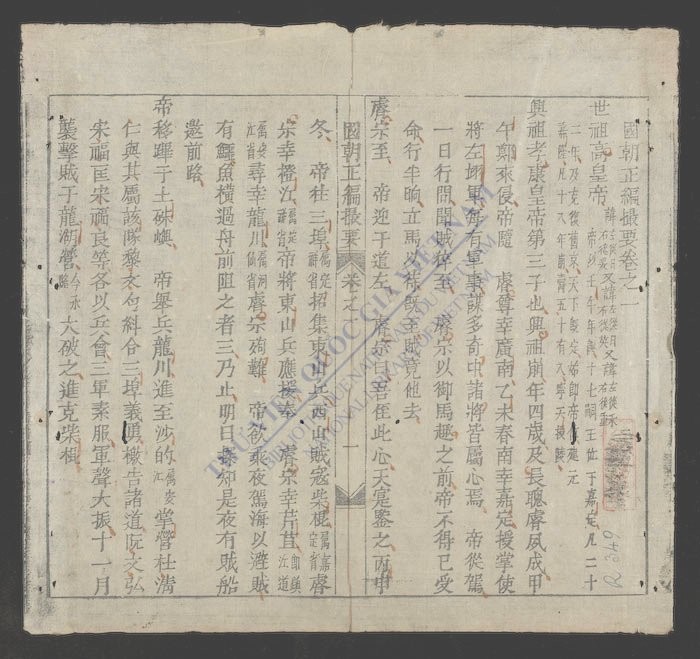 國朝正編撮要卷之一
世祖高皇帝
三年及克復舊京天下㝎始即帝位建元
嘉隆凡十八年壽五十有八寧天授陵
興祖孝康皇帝第三子也興祖崩年四歲及長聰睿夙成甲
午鄭來侵帝隨 睿尊幸廣南乙未春南幸嘉定授掌使
將左翊軍每有軍事謀多奇中諸將皆屬心焉 帝從駕
一日行間聞賊猝至 睿宗以御馬趣之前帝不得已受
命行半晌立馬以待旣至賊竟他去
睿宗至 帝迎于道左 睿宗曰吾侄此心天寔鑒之丙申
國朝正編撮要 卷之一 一
冬 帝在三埠招集東山兵西山賊寇柴棍 睿
宗幸橙江 帝將東山兵應援奉 睿宗幸芹苴
尋幸龍川 睿宗殉難 帝欲乘夜駕海以避賊
有鱷魚橫過舟前阻之者三乃止明日探知是夜有賊船
邀前路
帝移蹕于土硃嶼 帝舉兵龍川進至沙的 掌營杜清
仁與其屬該隊黎文勻糾合三埠義勇檄告諸道阮文弘
宋福匡宋福良等各以兵會三軍素服軍聲大振十一月
襲擊賊于龍湖營 大破之進克柴棍
R.349
THƯ VIỆN QUỐC GIA VIỆT NAM
BIBLIOTHECA NATIONALIS VIETNAM
NATIONAL LIBRARY OF VIETNAM